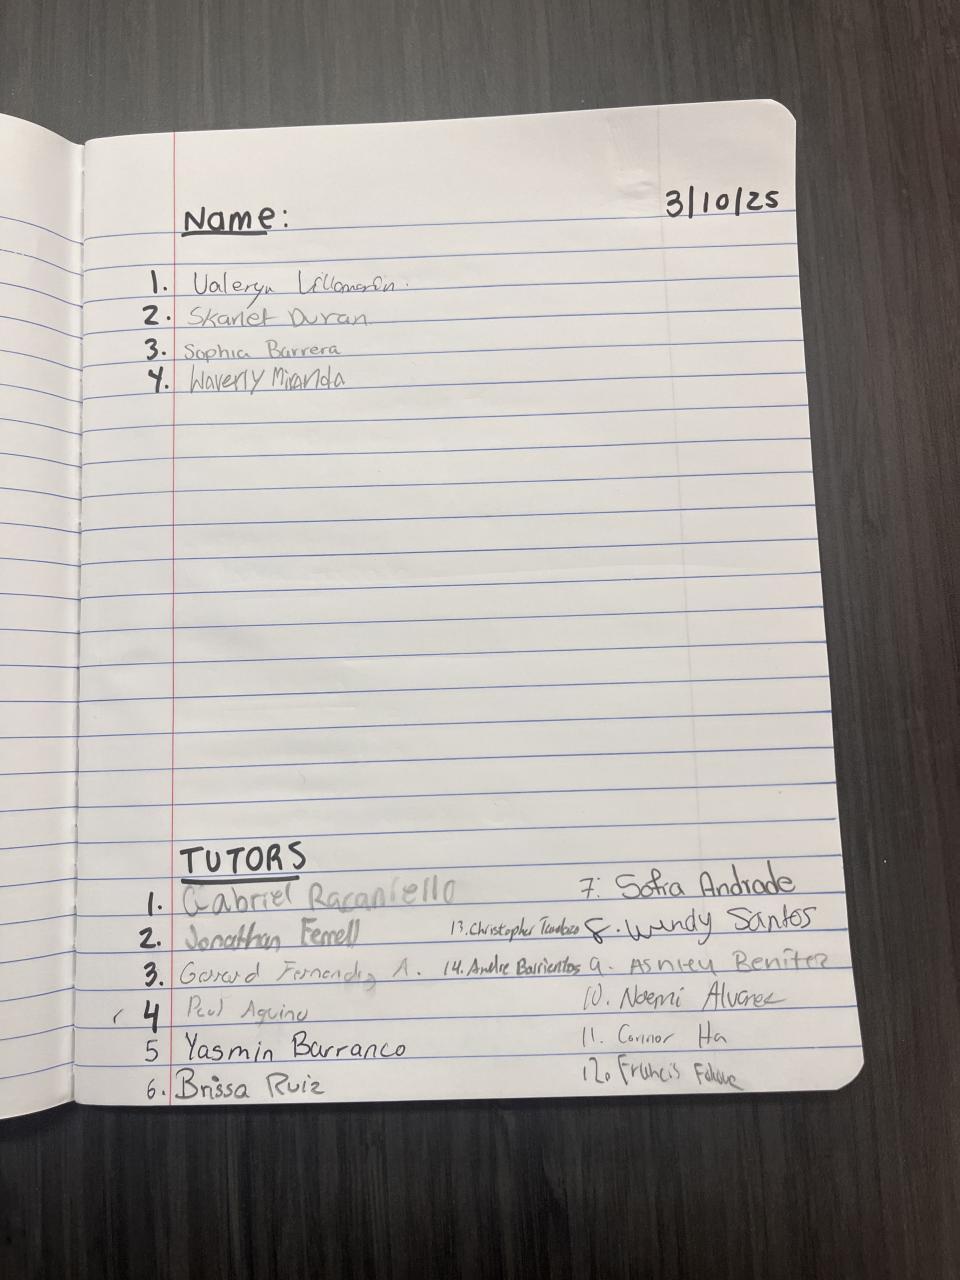 Name:
3/10/25
1. Valeryn Villamarin.
2. Skarlet Duran
3. Sophia Barrera
4. Waverly Miranda
TUTORS
1. Gabriel Racaniello
2. Jonathan Ferrell
3. Gerard Fernandez A.
4 Paul Aquino
5 Yasmin Barranco
6. Brissa Ruiz
7. Sofia Andrade
8. Wendy Santos
9. Ashley Benitez
10. Noemi Alvarez
11. Connor Ha
12. Francis
13. Christopher
14. Andre Barrientos